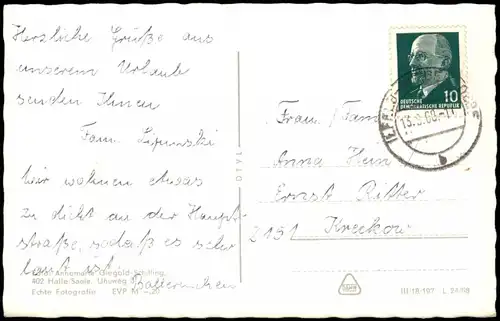 Herzliche Grüße aus
unserem Urlaub
senden Ihnen
Fam. Lipowski
Wir wohnen etwas
zu dicht an der Haupt-
straße, sodaß es sehr
laut ist.
Foto: Annemarie Giegold-Schilling,
402 Halle-Saale, Uhuweg
Echte Fotografie EVP M -,20
DTVL
10
DEUTSCHE
DEMOKRATISCHE REPUBLIK
b
Frau/Fam.
Anna Hein
Ernst Ritter
2151
Kreckow
III/18/197 L 24/68